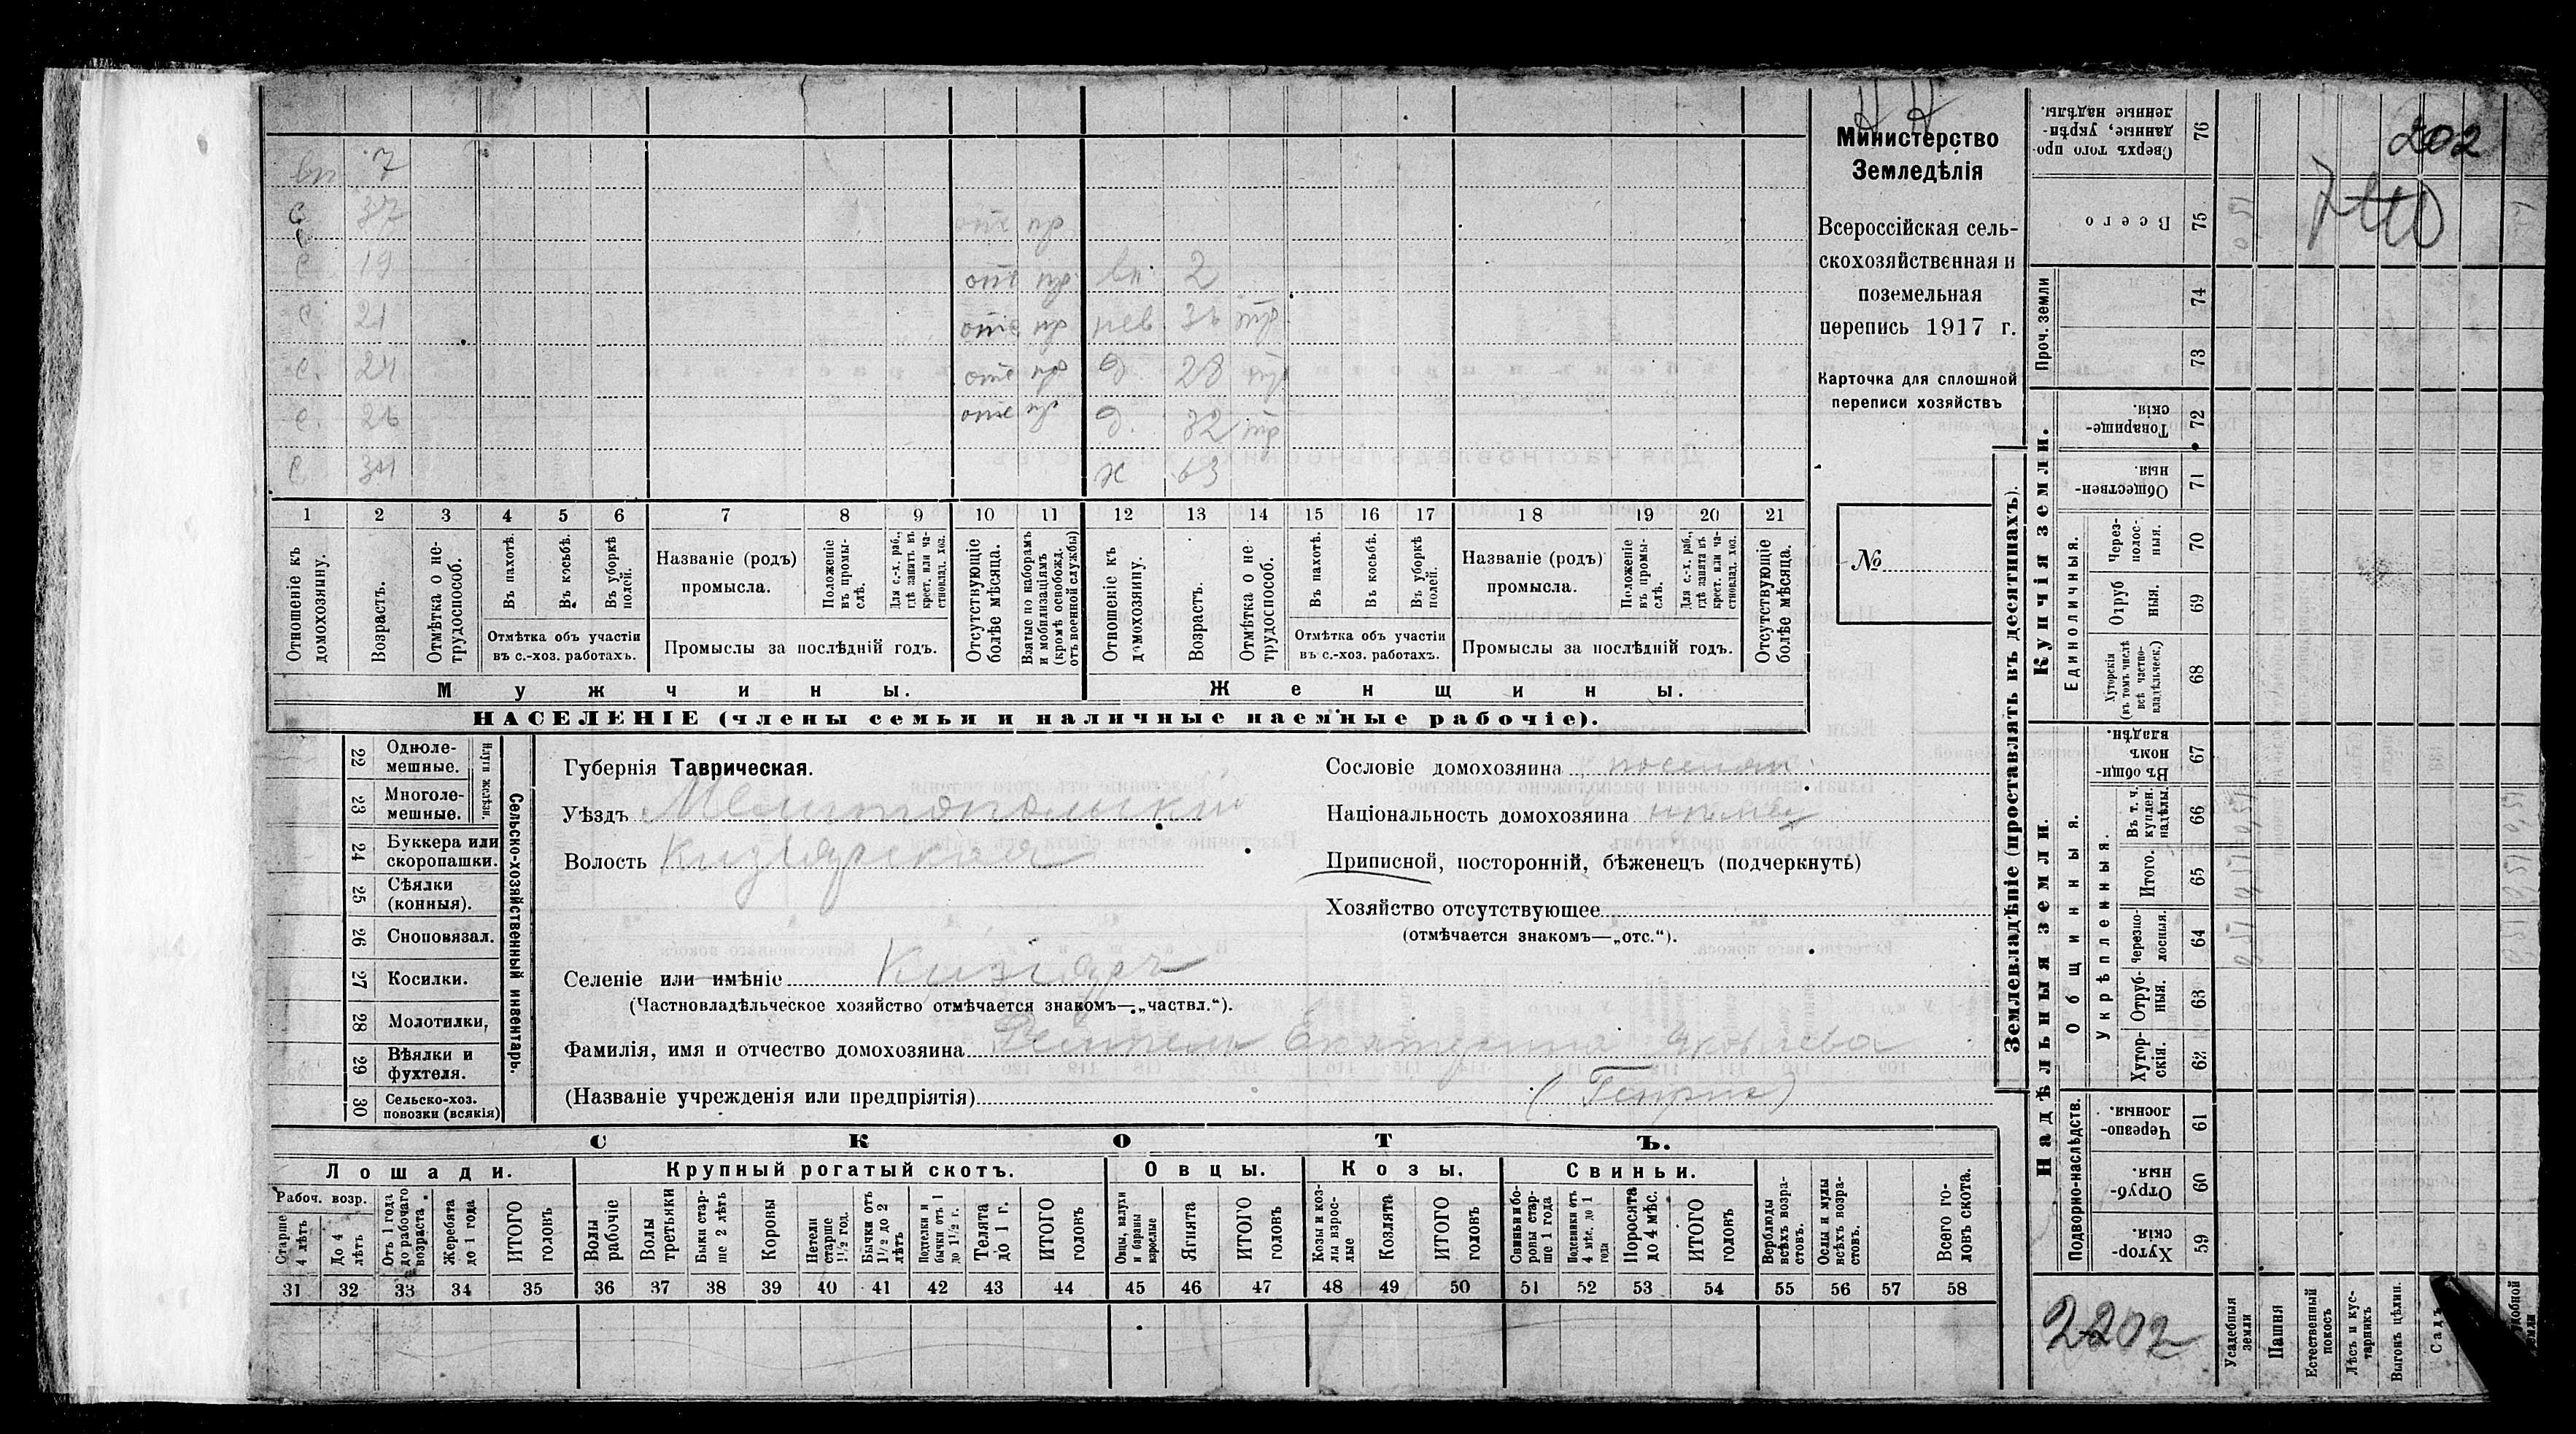 202
вн 7
с 37 отс пр
с 19 отс пр вн. 2
с 21 отс пр нев 36 тр
с. 24 отс пр д. 28 тр
с. 26 отс пр д. 32 тр
с 34 ж 63
1 2 3 4 5 6 7 8 9 10 11 12 13 14 15 16 17 18 19 20 21
Отношеніе къ домохозяину.
Возрастъ.
Отмѣтка о не-трудоспособ.
Въ пахотѣ.
Въ косьбѣ.
Въ уборкѣ полей.
Отмѣтка объ участіи въ с.-хоз. работахъ.
Названіе (родъ) промысла.
Положеніе въ промы-слѣ.
Для с.-х. раб., гдѣ занятъ въ крест. или ча-стновлад. хоз.
Промыслы за послѣдній годъ.
Отсутствующіе болѣе мѣсяца.
Взятые по наборамъ и мобилизаціямъ (кромѣ освобожд. отъ военной службы)
Отношеніе къ домохозяину.
Возрастъ.
Отмѣтка о не-трудоспособ.
Въ пахотѣ.
Въ косьбѣ.
Въ уборкѣ полей.
Отмѣтка объ участіи въ с.-хоз. работахъ.
Названіе (родъ) промысла.
Положеніе въ промы-слѣ.
Для с.-х. раб., гдѣ занятъ въ крест. или ча-стновлад. хоз.
Промыслы за послѣдній годъ.
Отсутствующіе болѣе мѣсяца.
Мужчины. Женщины.
НАСЕЛЕНІЕ (члены семьи и наличные наемные рабочіе).
Министерство
Земледѣлія
Всероссійская сель-
скохозяйственная и
поземельная
перепись 1917 г.
Карточка для сплошной
переписи хозяйствъ
№
22 Одноле-мешные.
23 Многоле-мешные.
Плуги желѣзн.
24 Буккера или скоропашки.
25 Сѣялки (конныя).
26 Сноповязал.
27 Косилки.
28 Молотилки,
29 Вѣялки и фухтеля.
30 Сельско-хоз. повозки (всякія)
Сельско-хозяйственный инвентарь.
Губернія Таврическая.
Уѣздъ Мелитопольскій
Волость Кизіярская
Селеніе или имѣніе Кизіяръ
(Частновладѣльческое хозяйство отмѣчается знакомъ—„частвл.“).
Фамилія, имя и отчество домохозяина Екатерина Яковлева
(Названіе учрежденія или предпріятія) (Генрих)
Сословіе домохозяина поселян.
Національность домохозяина нѣмец
Приписной, посторонній, бѣженец (подчеркнуть)
Хозяйство отсутствующее
(отмѣчается знакомъ—„отс.“).
СКОТЪ.
Лошади. Крупный рогатый скотъ. Овцы. Козы. Свиньи.
Рабоч. возр.
Старше 4 лѣтъ
До 4 лѣтъ
Отъ 1 года до рабочаго возраста
Жеребята до 1 года
ИТОГО головъ
Волы рабочіе
Волы третьяки
Быки стар-ше 2 лѣтъ
Коровы
Нетели старше 1½ год.
Бычки отъ 1½ до 2 лѣтъ
Подтелки и бычки отъ 1 до 1½ г.
Телята до 1 г.
ИТОГО головъ
Овцы, валухи и бараны взрослые
Ягнята
ИТОГО головъ
Козы и коз-лы взрос-лые
Козлята
ИТОГО головъ
Свиньи и бо-ровы стар-ше 1 года
Подсвинки отъ 4 мѣс. до 1 года
Поросята до 4 мѣс.
ИТОГО головъ
Верблюды всѣхъ возра-стовъ.
Ослы и мулы всѣхъ возра-стовъ.
Всего го-ловъ скота.
31 32 33 34 35 36 37 38 39 40 41 42 43 44 45 46 47 48 49 50 51 52 53 54 55 56 57 58
Землевладѣніе (проставлять въ десятинахъ).
76 Сверхъ того про-данные, укрѣп-ленные надѣлы.
75 Всего
Проч. земли
74
73
Купчія земли.
72 Товарище-скія.
71 Обществен-ныя.
Единоличныя.
70 Через-полос-ныя.
69 Отруб ныя.
68 Хуторскія (въ томъ числѣ всѣ частно-владѣльческ.)
Надѣльныя земли.
Общинныя.
67 Въ общи-номъ владѣн.
Укрѣпленныя.
66 Въ т. ч. куплен. надѣлы.
65 Итого.
64 Черезпо-лосныя.
63 Отруб-ныя.
62 Хутор-скія.
Подворно-наслѣдств.
61 Черезпо-лосныя.
60 Отруб-ныя.
59 Хутор-скія.
2202
Усадебныя земли
Пашня
Естественный покосъ
Лѣсъ и кус-тарникъ
Выгонъ цѣлин.
Садъ